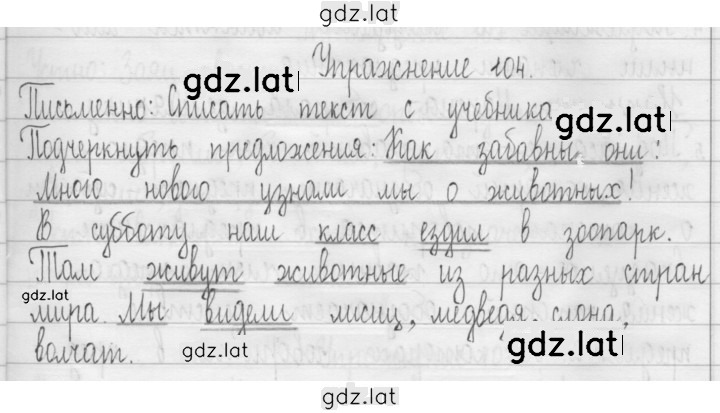 gdz.lat
Упражнение 104.
gdz.lat
Письменно: Списать текст с учебника
gdz.lat
Подчеркнуть предложения: Как забавны они!
Много нового узнали мы о животных!
В субботу наш класс ездил в зоопарк.
Там живут животные из разных стран
gdz.lat
мира. Мы видели лисиц, медведя, слона,
gdz.lat
волчат.
gdz.lat
gdz.lat